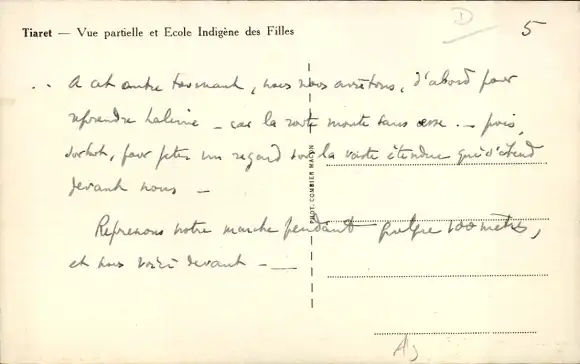 Tiaret — Vue partielle et Ecole Indigène des Filles
D
5
.. A cet autre tournant, nous nous arrêtons, d'abord pour
reprendre haleine — car la route monte sans cesse — puis,
surtout, pour jeter un regard sur la vaste étendue qui s'étend
devant nous —
Reprenons notre marche pendant quelque 100 mètres,
et nous voici devant — —
PHOT. COMBIER MACON